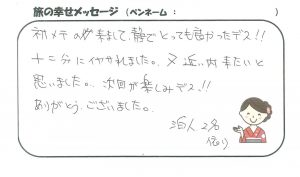 旅の幸せメッセージ (ペンネーム： )
初メテ 来まして、静でとっても良かったデス!!
十二分にイヤされました。又近い内来たいと
思いました。次回が楽しみデス!!
ありがとうございました。
2名